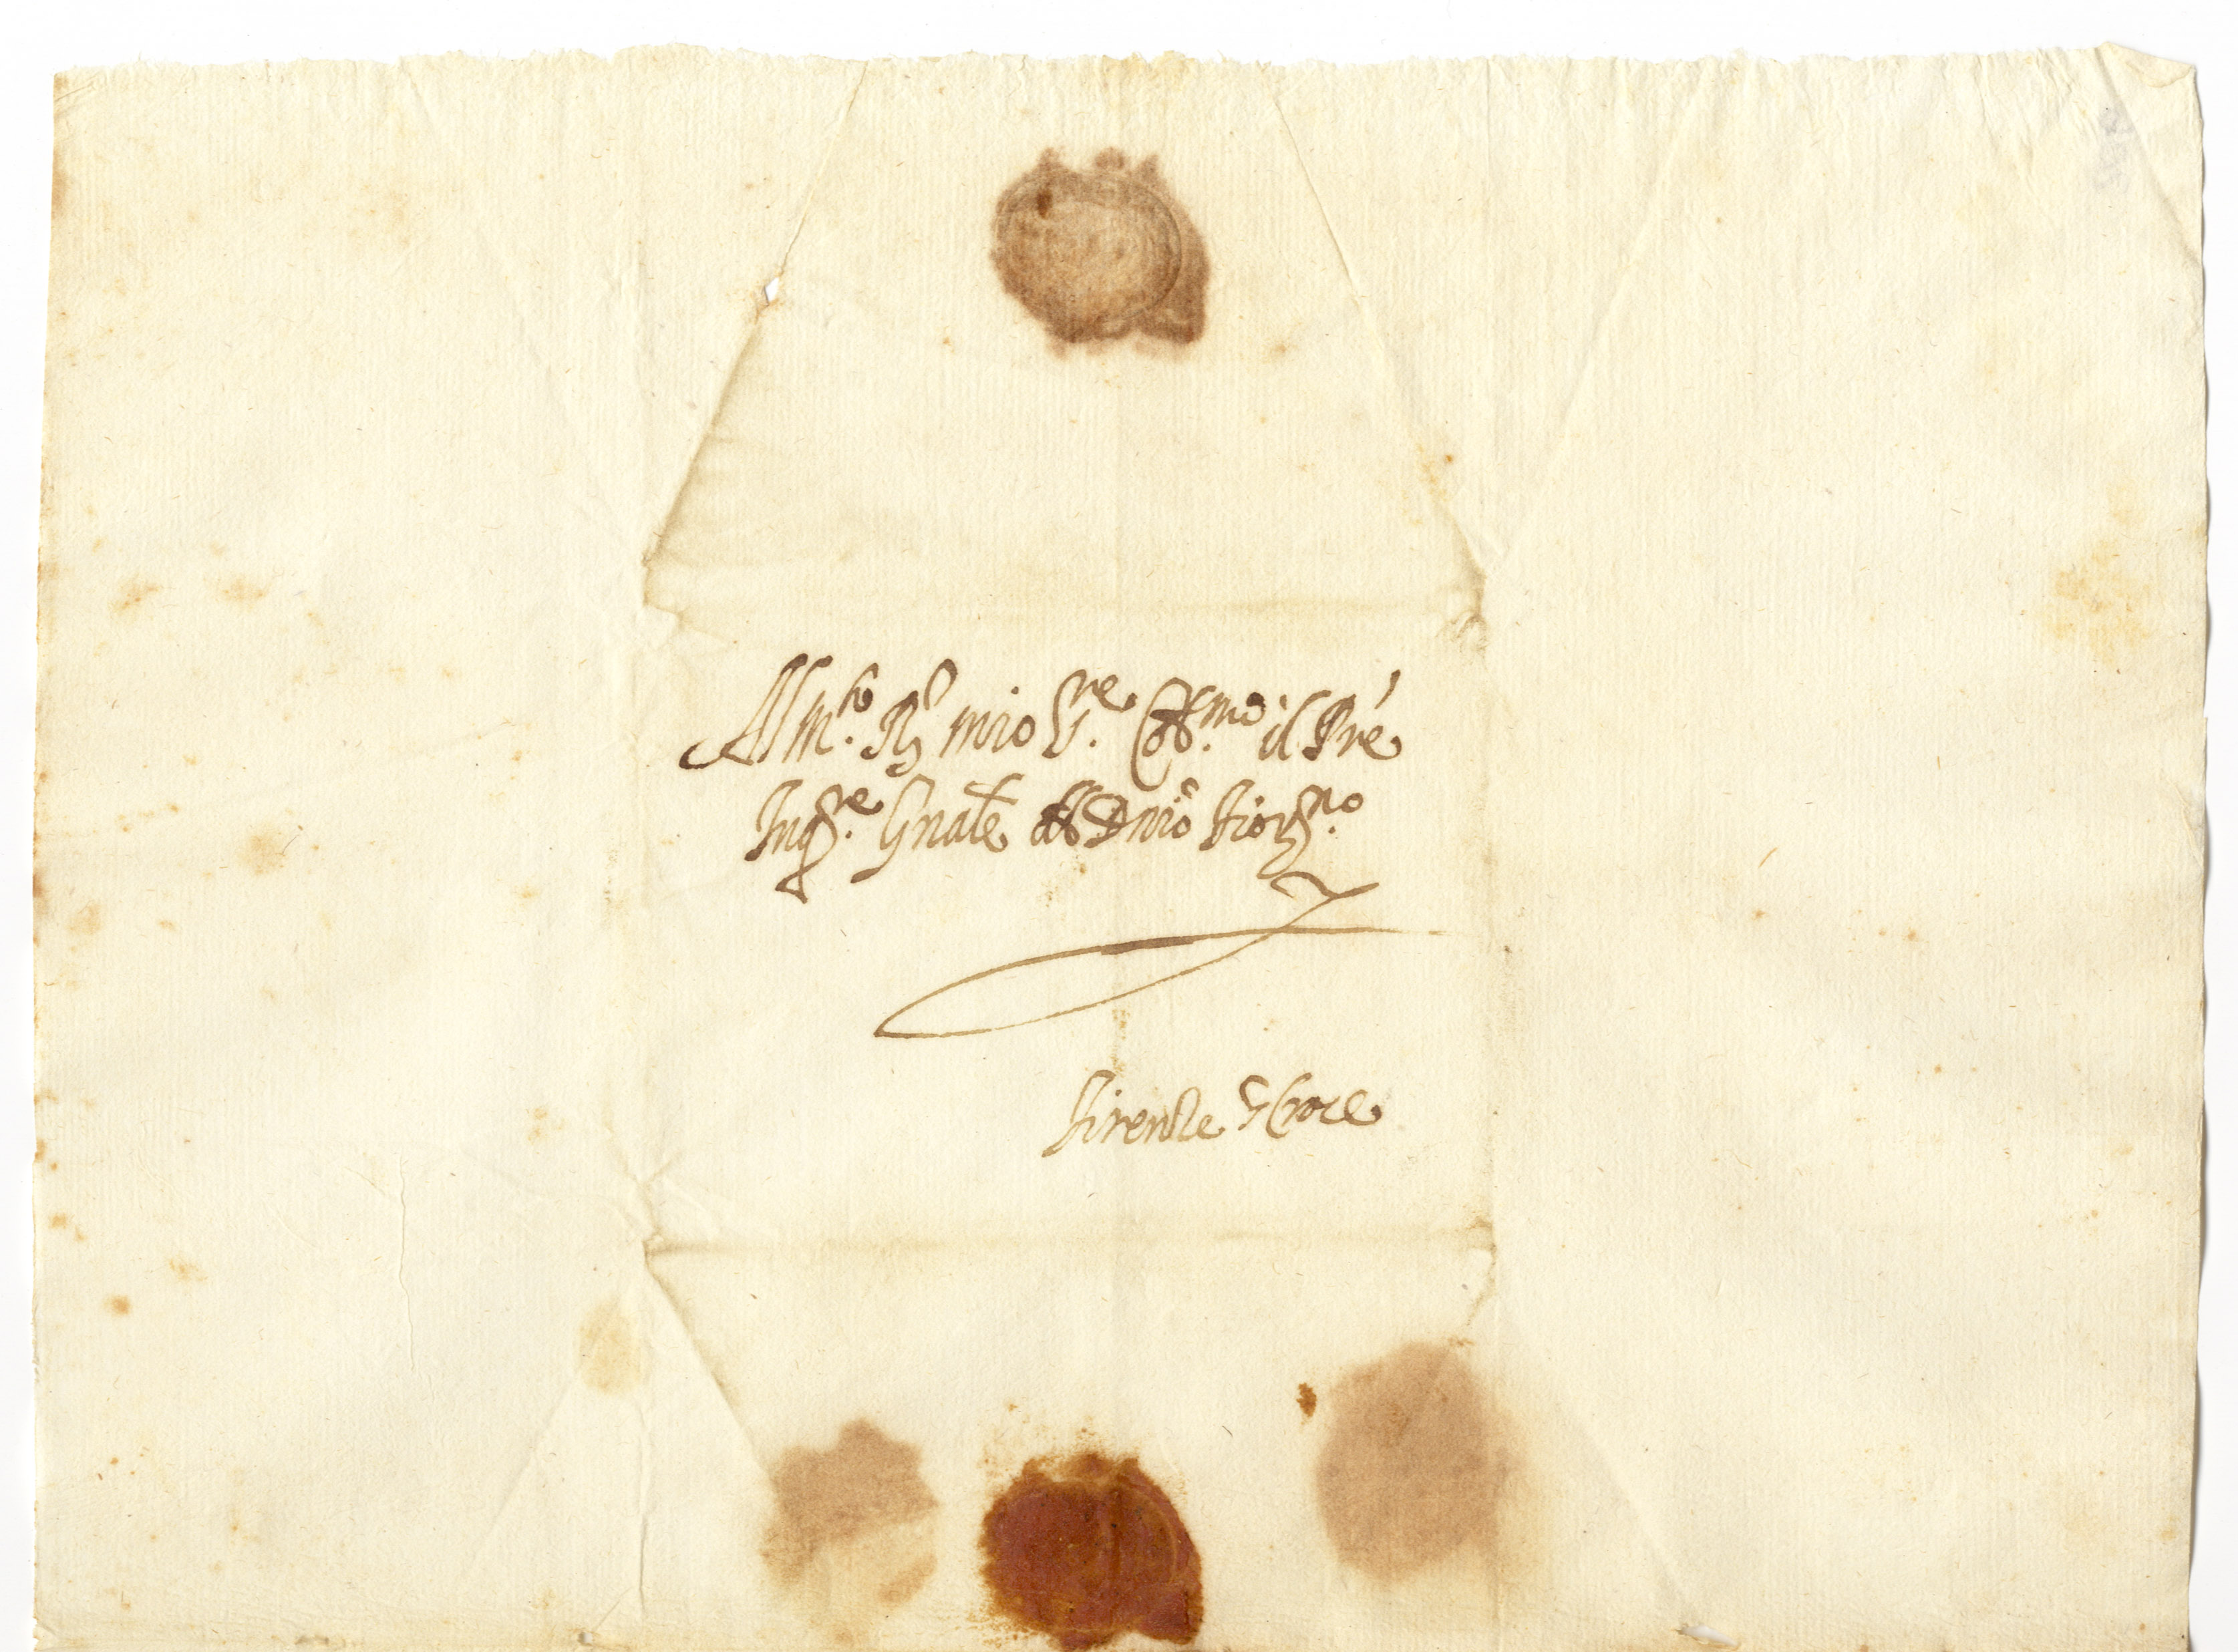 Al m.to R.do mio S.re Oss.mo il Pre
Inq.re Gnale del Dnio Fior.no
Firenze S Croce